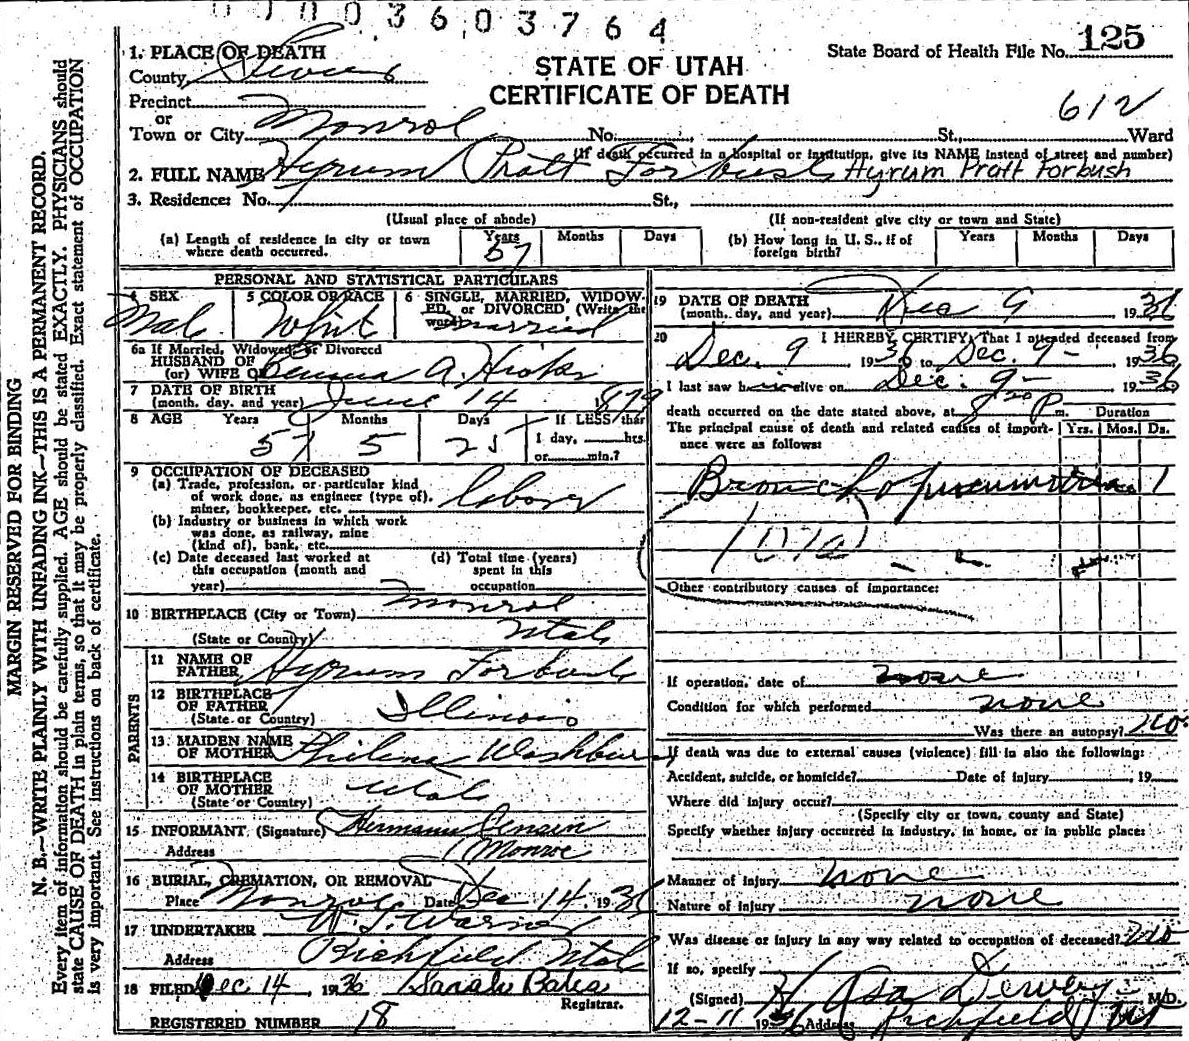 0 0 0 3 6 0 3 7 6 4
State Board of Health File No. 125
STATE OF UTAH
CERTIFICATE OF DEATH
612
1. PLACE OF DEATH
County Sevier
Precinct
or
Town or City Monroe No. St., Ward
(If death occurred in a hospital or institution, give its NAME instead of street and number)
2. FULL NAME Hyrum Pratt Forbush Hyrum Pratt Forbush
3. Residence: No. St.,
(Usual place of abode) (If non-resident give city or town and State)
(a) Length of residence in city or town where death occurred. Years 57 Months Days
(b) How long in U. S., if of foreign birth? Years Months Days
PERSONAL AND STATISTICAL PARTICULARS
4 SEX Male
5 COLOR OR RACE White
6 SINGLE, MARRIED, WIDOWED, or DIVORCED, (Write the word) Married
6a If Married, Widowed, or Divorced
HUSBAND OF
(or) WIFE OF A. Hicks
7 DATE OF BIRTH
(month, day, and year) June 14 1879
8 AGE Years 57 Months 5 Days 25 If LESS than
1 day, hrs.
or min.?
9 OCCUPATION OF DECEASED
(a) Trade, profession, or particular kind
of work done, as engineer (type of),
miner, bookkeeper, etc. Labor
(b) Industry or business in which work
was done, as railway, mine
(kind of), bank, etc.
(c) Date deceased last worked at
this occupation (month and
year)
(d) Total time (years)
spent in this
occupation
10 BIRTHPLACE (City or Town) Monroe
(State or Country) Utah
PARENTS
11 NAME OF
FATHER Hyrum Forbush
12 BIRTHPLACE
OF FATHER
(State or Country) Illinois
13 MAIDEN NAME
OF MOTHER Philena Washburn
14 BIRTHPLACE
OF MOTHER
(State or Country) Utah
15 INFORMANT (Signature) Hermann Jensen
Address Monroe
16 BURIAL, CREMATION, OR REMOVAL
Place Monroe Date Dec 14 1936
17 UNDERTAKER Warner
Address Richfield Utah
18 FILED Dec 14, 1936 Sarah Bates
Registrar.
REGISTERED NUMBER 18
19 DATE OF DEATH
(month, day, and year) Dec 9 1936
20 I HEREBY CERTIFY, That I attended deceased from
Dec. 9 1936 to Dec. 9- 1936
I last saw him alive on Dec. 9- 1936
death occurred on the date stated above, at 8 20 P. m. Duration
The principal cause of death and related causes of importance were as follows: Yrs. Mos. Ds.
Broncho pneumonia 1
107a
Other contributory causes of importance:
If operation, date of none
Condition for which performed none
Was there an autopsy? no
If death was due to external causes (violence) fill in also the following:
Accident, suicide, or homicide? Date of injury , 19
Where did injury occur?
(Specify city or town, county and State)
Specify whether injury occurred in industry, in home, or in public place:
Manner of injury none
Nature of injury none
Was disease or injury in any way related to occupation of deceased? no
If so, specify
(Signed) H Asa Dewey M.D.
12-11 1936 Address Richfield Ut
MARGIN RESERVED FOR BINDING
N. B.—WRITE PLAINLY WITH UNFADING INK—THIS IS A PERMANENT RECORD.
Every item of information should be carefully supplied. AGE should be stated EXACTLY. PHYSICIANS should
state CAUSE OF DEATH in plain terms, so that it may be properly classified. Exact statement of OCCUPATION
is very important. See instructions on back of certificate.